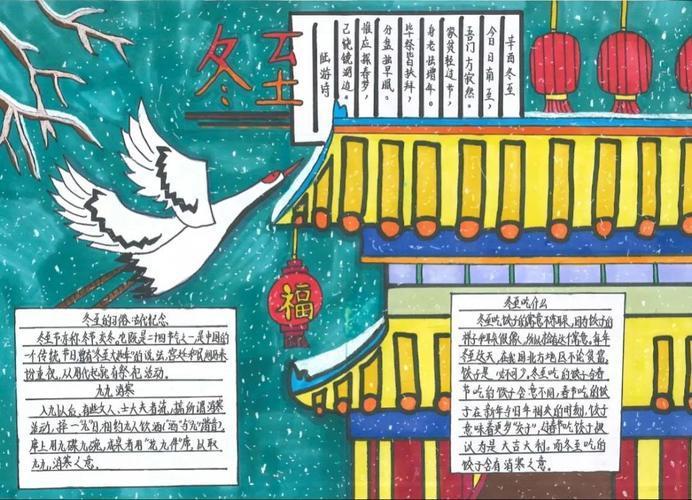 冬至
辛酉冬至
今日日南至,
吾门方寂然。
家贫轻过节,
身老怯增年。
毕祭皆扶拜,
分盘独早眠。
惟应探春梦,
已绕镜湖边。
陆游诗
福
冬至的习俗:古代纪念
冬至节亦称冬节、交冬。它既是二十四节气之一,是中国的
一个传统节日,曾有"冬至大如年"的说法,宫廷和民间历来
十分重视,从周代起就有祭祀活动。
九九消寒
入九以后,有些文人、士大夫者流,搞所谓消寒
活动,择一"九"日,相约九人饮酒("酒"与"九"谐音),
席上用九碟九碗,成桌者用"花九件"席,以取
九九消寒之意。
冬至吃什么
冬至吃饺子的寓意,因为饺子的
样子和耳朵很像,所以每年
冬至这天,在我国北方地区不论贫富,
饺子是必不可少。冬至吃的饺子和春
节吃的饺子含意不同,春节吃的饺
子在新年与旧年相交的时刻,饺子
意味着更岁"交子",过春节吃饺子被
认为是大吉大利。而冬至吃的
饺子含有消寒之意。